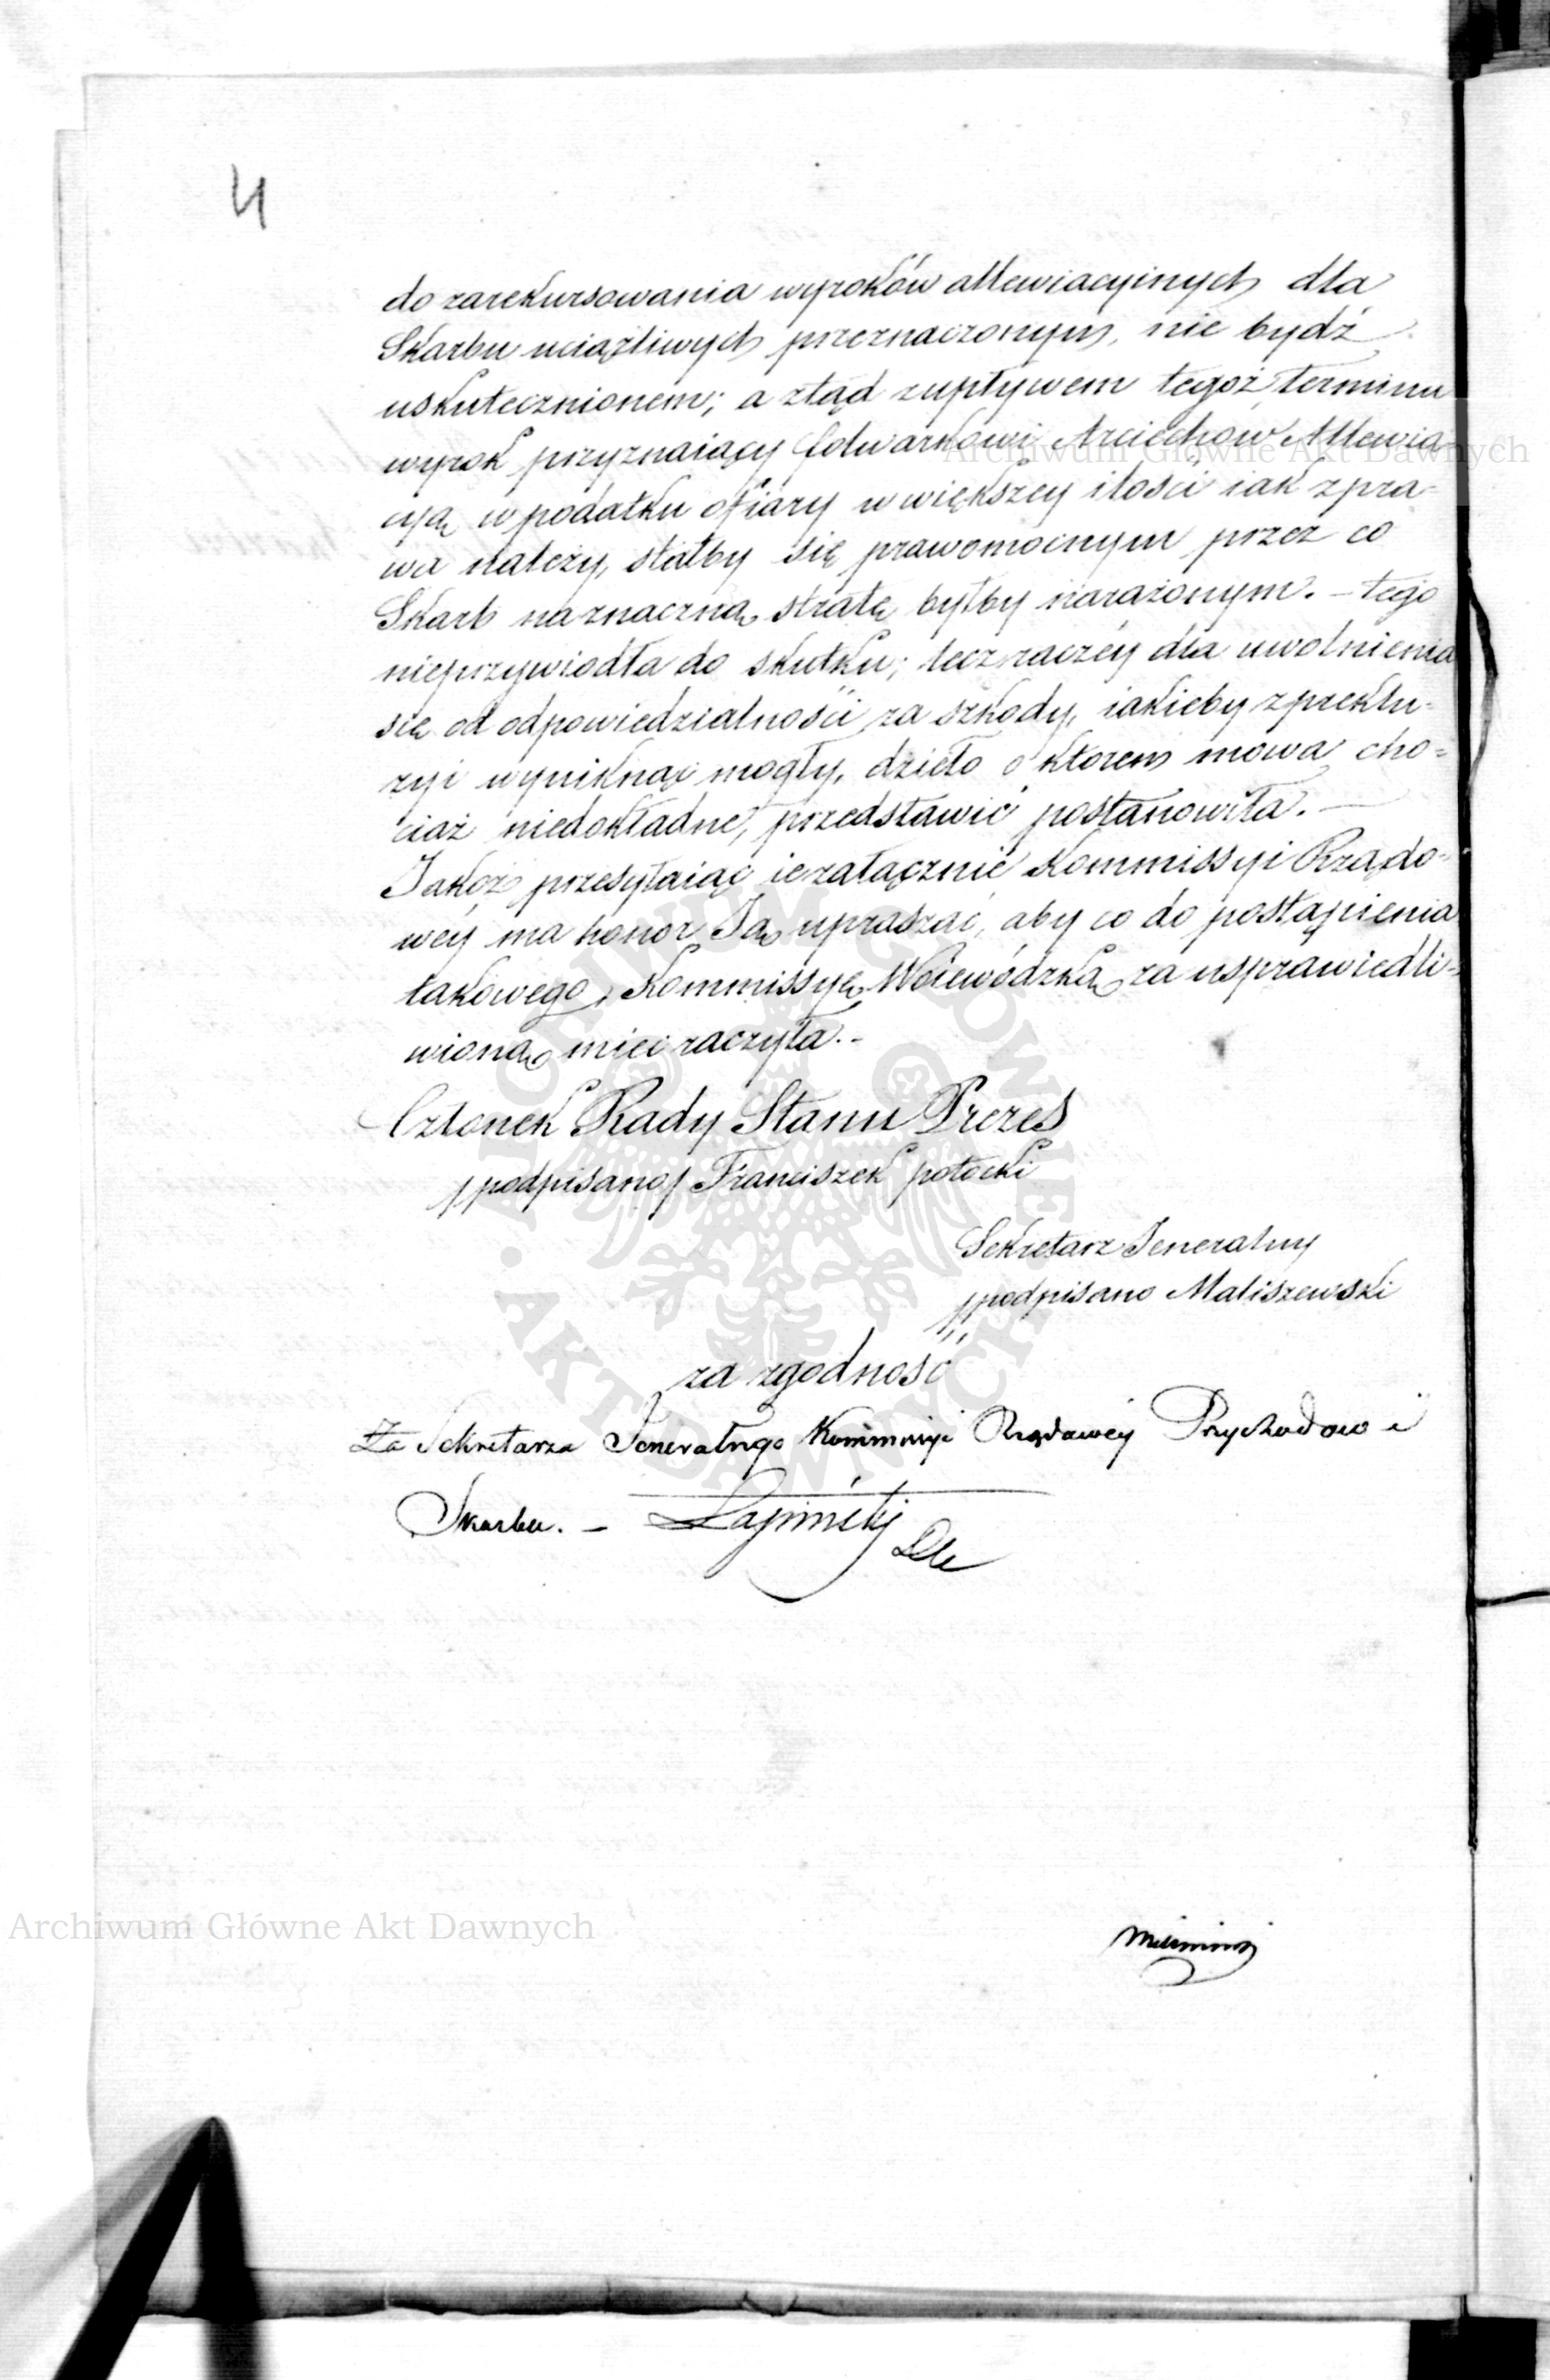 4
do zarekursowania wyroków allewiacyinych dla
Skarbu uciążliwych przeznaczonym, nie bydź
uskutecznionem; a ztąd zupływem tegoż terminu
wyrok przyznaiący folwarkowi Arciechow Allewia-
Archiwum Główne Akt Dawnych
cyą w podatku ofiary w większey ilości iak z pra-
wa należy, stałby się prawomocnym przez co
Skarb na znaczną stratę byłby narażonym. – tego
nieprzywiodła do skutku; lecz raczéy dla uwolnienia
się od odpowiedzialności za szkody, iakieby z preklu-
zyi wyniknąć mogły, dzieło o ktorem mowa cho-
ciaż niedokładne, przedstawić postanowiła. –
Jakoż przesyłaiąc ie załącznie Kommissyi Rządo-
wéy ma honor Ją upraszać, aby co do postąpienia
takowego, Kommissyę Woiewódzką za usprawiedli-
wioną mieć raczyła. -
Członek Rady Stanu Prezes
/podpisano/ Franciszek potocki
Sekretarz Jeneralny
/podpisano Maliszewski
za zgodność
Za Sekretarza Jeneralnego Kommissyi Rządowéy Przychodow i
Skarbu. –
ARCHIWUM GŁÓWNE • AKT DAWNYCH •
Archiwum Główne Akt Dawnych